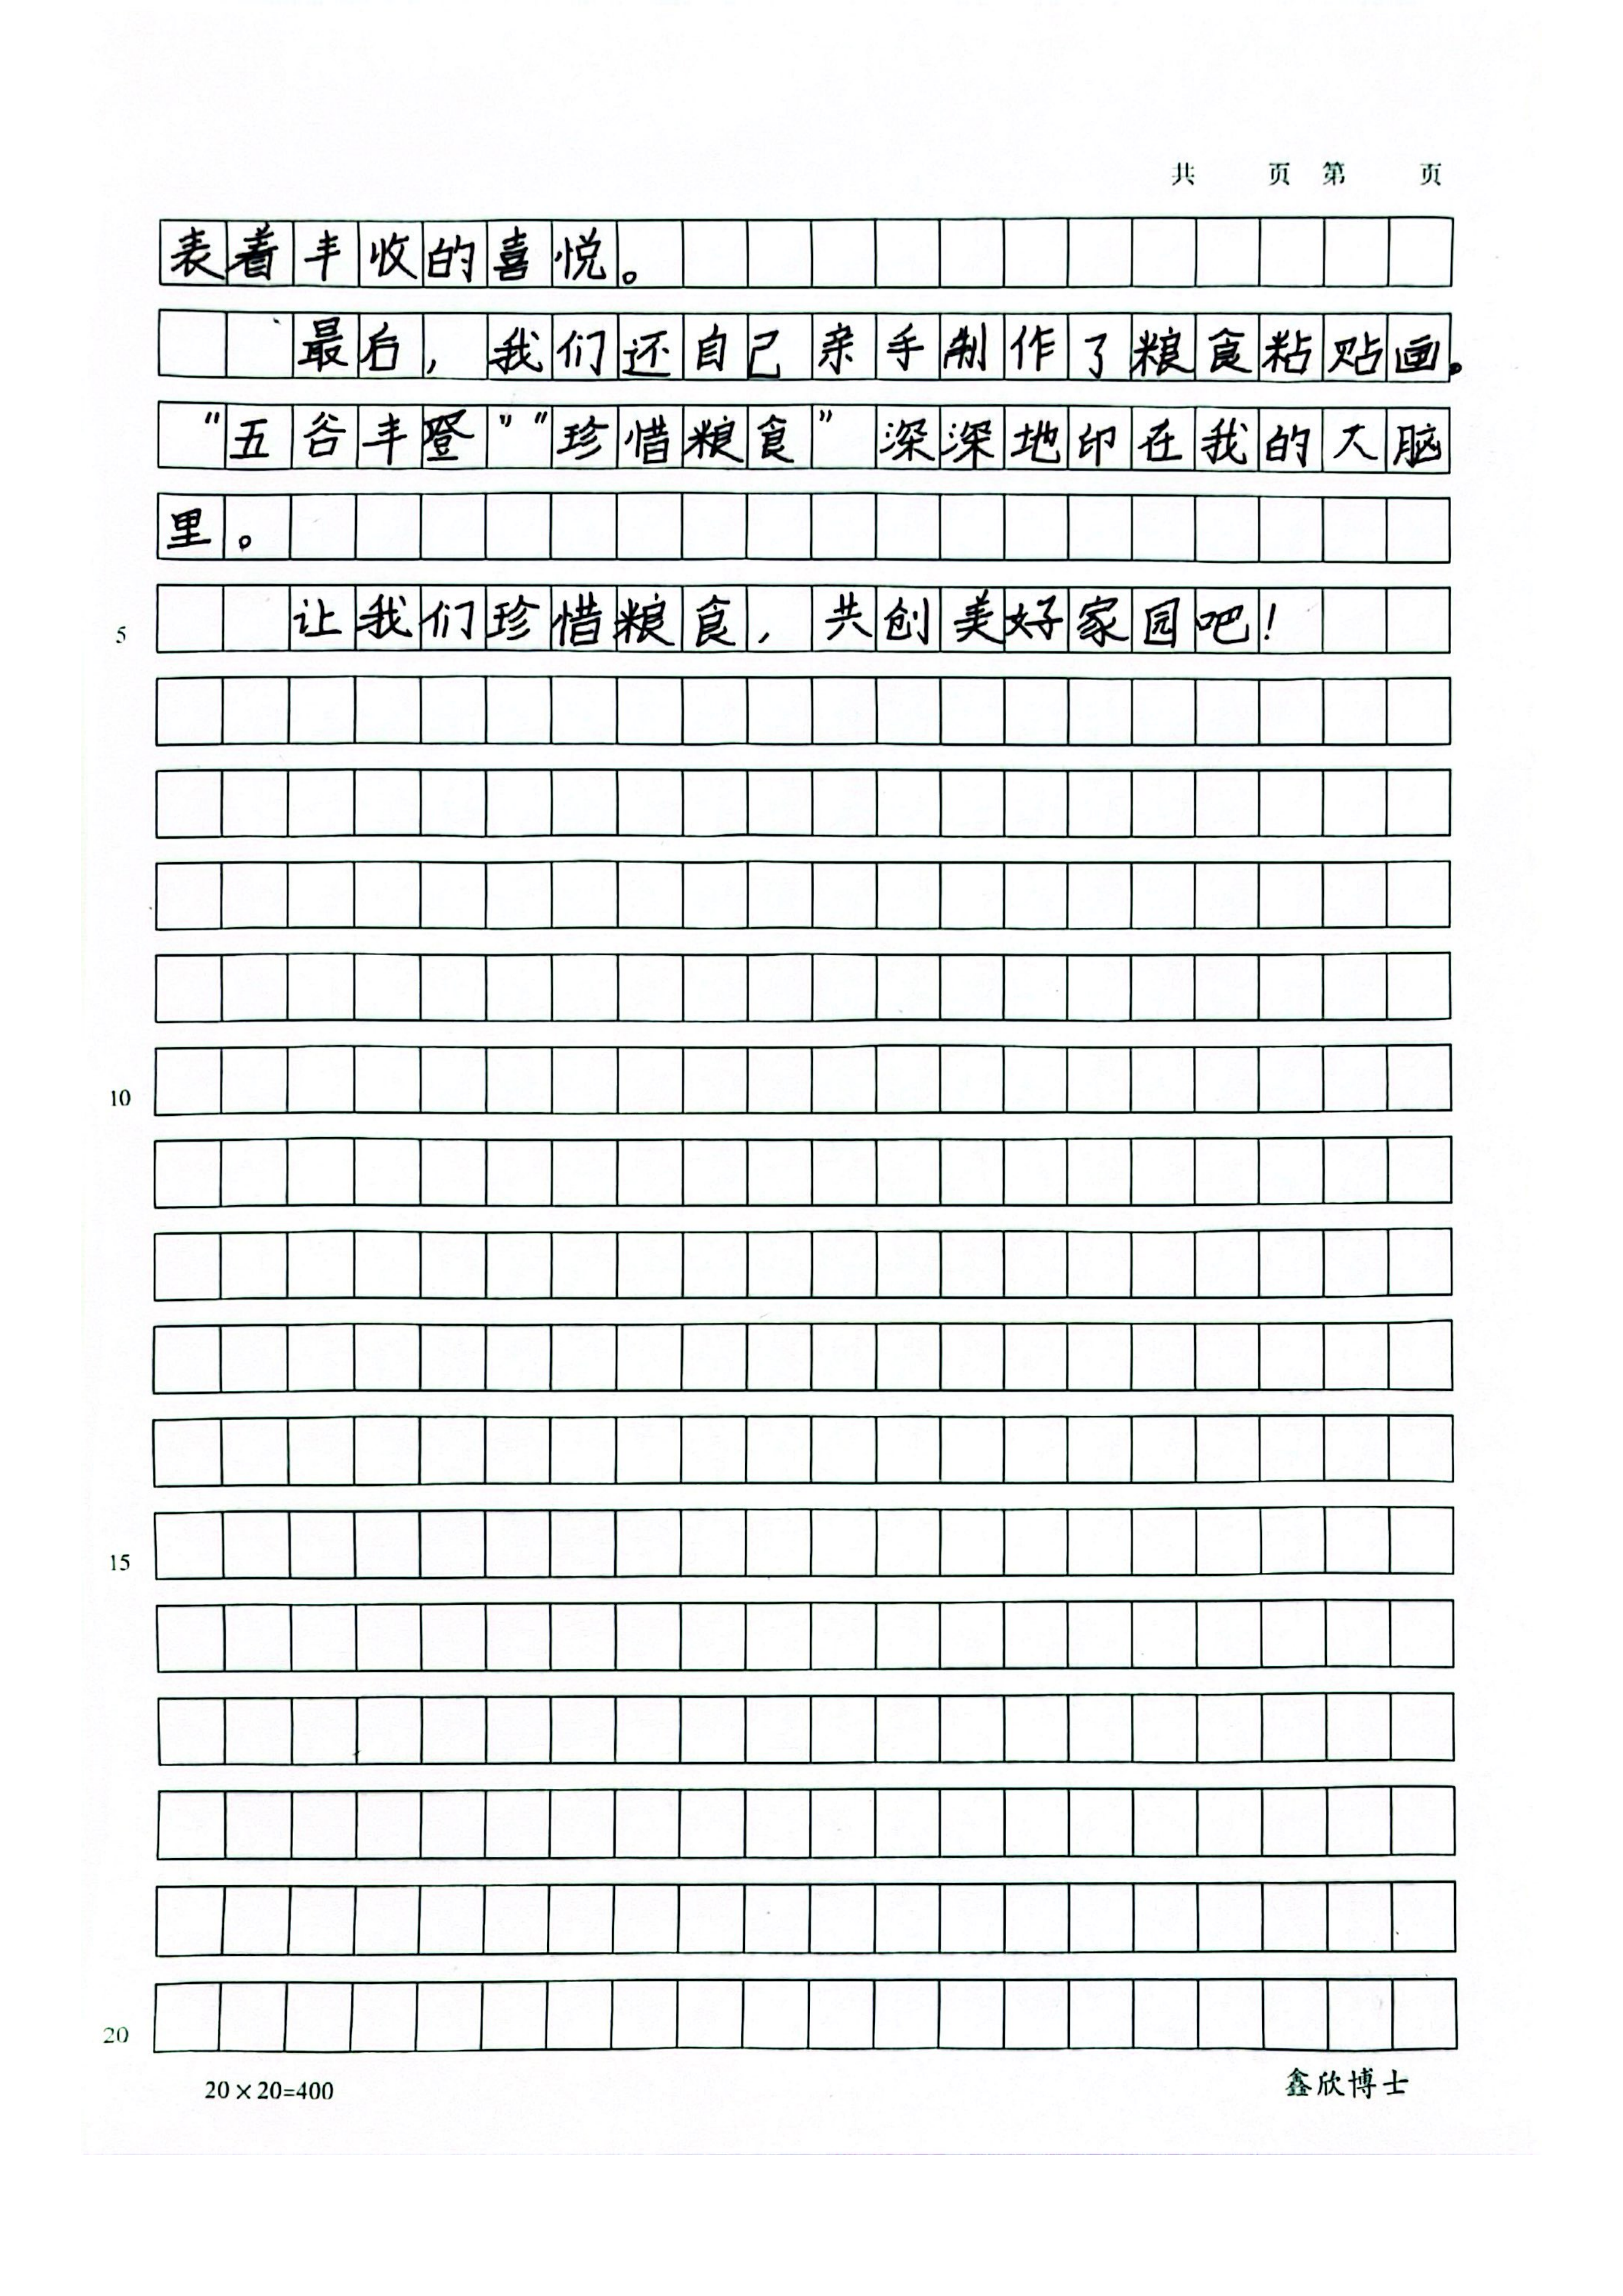 共 页 第 页
表着丰收的喜悦。
最后，我们还自己亲手制作了粮食粘贴画。
“五谷丰登”“珍惜粮食”深深地印在我的大脑
里。
5 让我们珍惜粮食，共创美好家园吧！
10
15
20
20×20=400 鑫欣博士